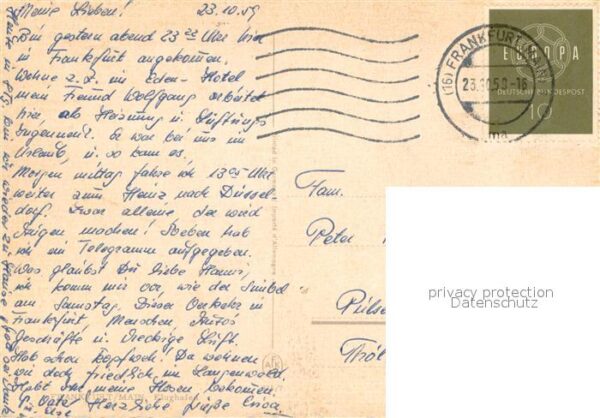 Meine Lieben! 23.10.59
Bin gestern abend 23 22 Uhr hier
in Frankfurt angekommen.
Wohne z.Z. im Eden-Hotel
mein Freund Wolfgang arbeitet
hier, als Heizung u. Lüftungs
Ingenieur. Er war bei uns im
Urlaub, u. so kam es,
Morgen mittag fahre ich 13 05 Uhr
weiter zum Heinz nach Düssel
dorf. Zwar alleine, der wird
Augen machen! Soeben hab
ich ein Telegramm aufgegeben.
Was glaubst Du liebe Hanni,
ich komm mir vor, wie der
am Samstag. Dieser Verkehr in
Frankfurt, Menschen Autos
Geschäfte u. dreckige Luft.
Hab schon Kopfweh! Da wohnen
wir doch friedlich im
Habt Ihr meine Hosen bekommen.
Herzliche Grüße
FRANKFURT/MAIN, Flughafen
Fam.
Peter
(16) FRANKFURT (MAIN)
23.10.59-16
EUROPA
DEUTSCHE BUNDESPOST
10
privacy protection
Datenschutz